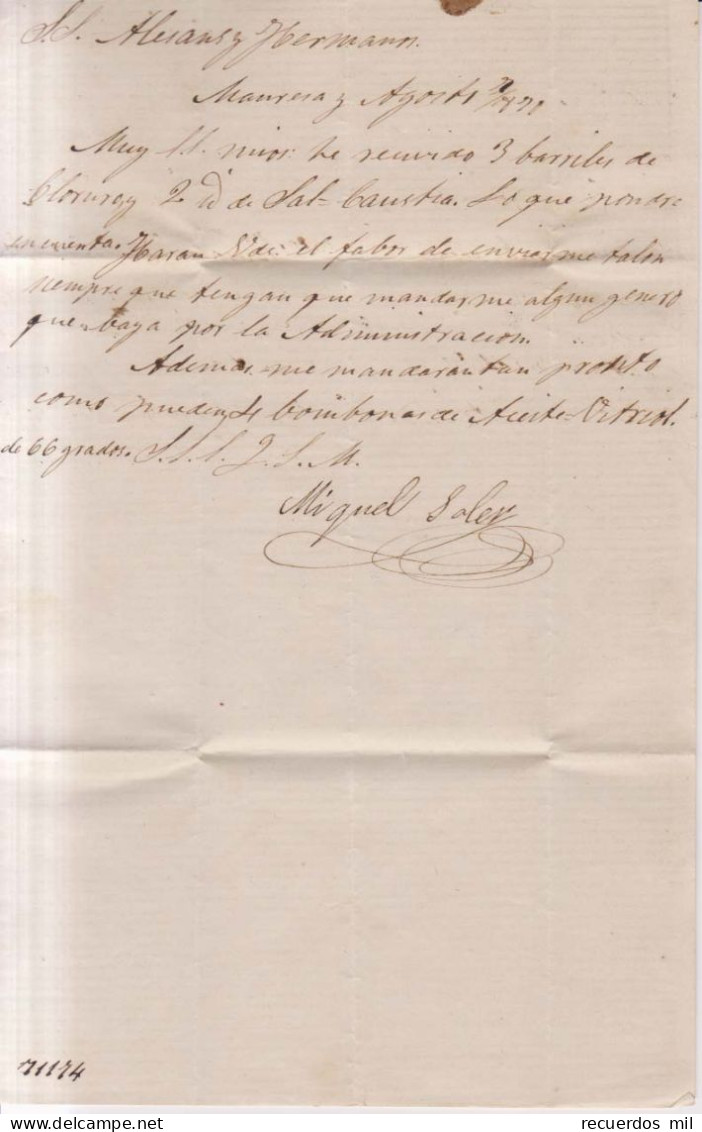 S.S. Alesans y Hermanos.
Manresa y Agosto 7/1871
Muy S.S. mios: he recivido 3 barriles de
Cloruro y 2 id de Sal-Caustia. Lo que pondre
en cuenta. Haran Vds. el fabor de enviarme talon
siempre que tengan que mandarme algun genero
que baya por la Administracion.
Ademas me mandarán tan pronto
como pueden 4 bombonas de Aceite-Vitriol.
de 66 grados. S.S.S.Q.S.M.
Miguel Soler
71174
recuerdos mil